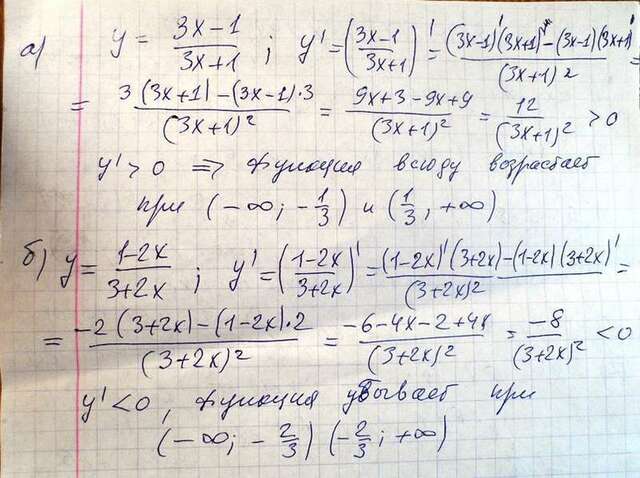 а) y = (3x-1)/(3x+1) ; y' = ((3x-1)/(3x+1))' = ((3x-1)'(3x+1) - (3x-1)(3x+1)')/(3x+1)² =
= (3(3x+1) - (3x-1)·3)/(3x+1)² = (9x+3-9x+9)/(3x+1)² = 12/(3x+1)² > 0
y' > 0 ⇒ функция всюду возрастает
при (-∞; -1/3) и (1/3; +∞)
б) y = (1-2x)/(3+2x) ; y' = ((1-2x)/(3+2x))' = ((1-2x)'(3+2x) - (1-2x)(3+2x)')/(3+2x)² =
= (-2(3+2x) - (1-2x)·2)/(3+2x)² = (-6-4x-2+4x)/(3+2x)² = -8/(3+2x)² < 0
y' < 0, функция убывает при
(-∞; -2/3) (-2/3; +∞)